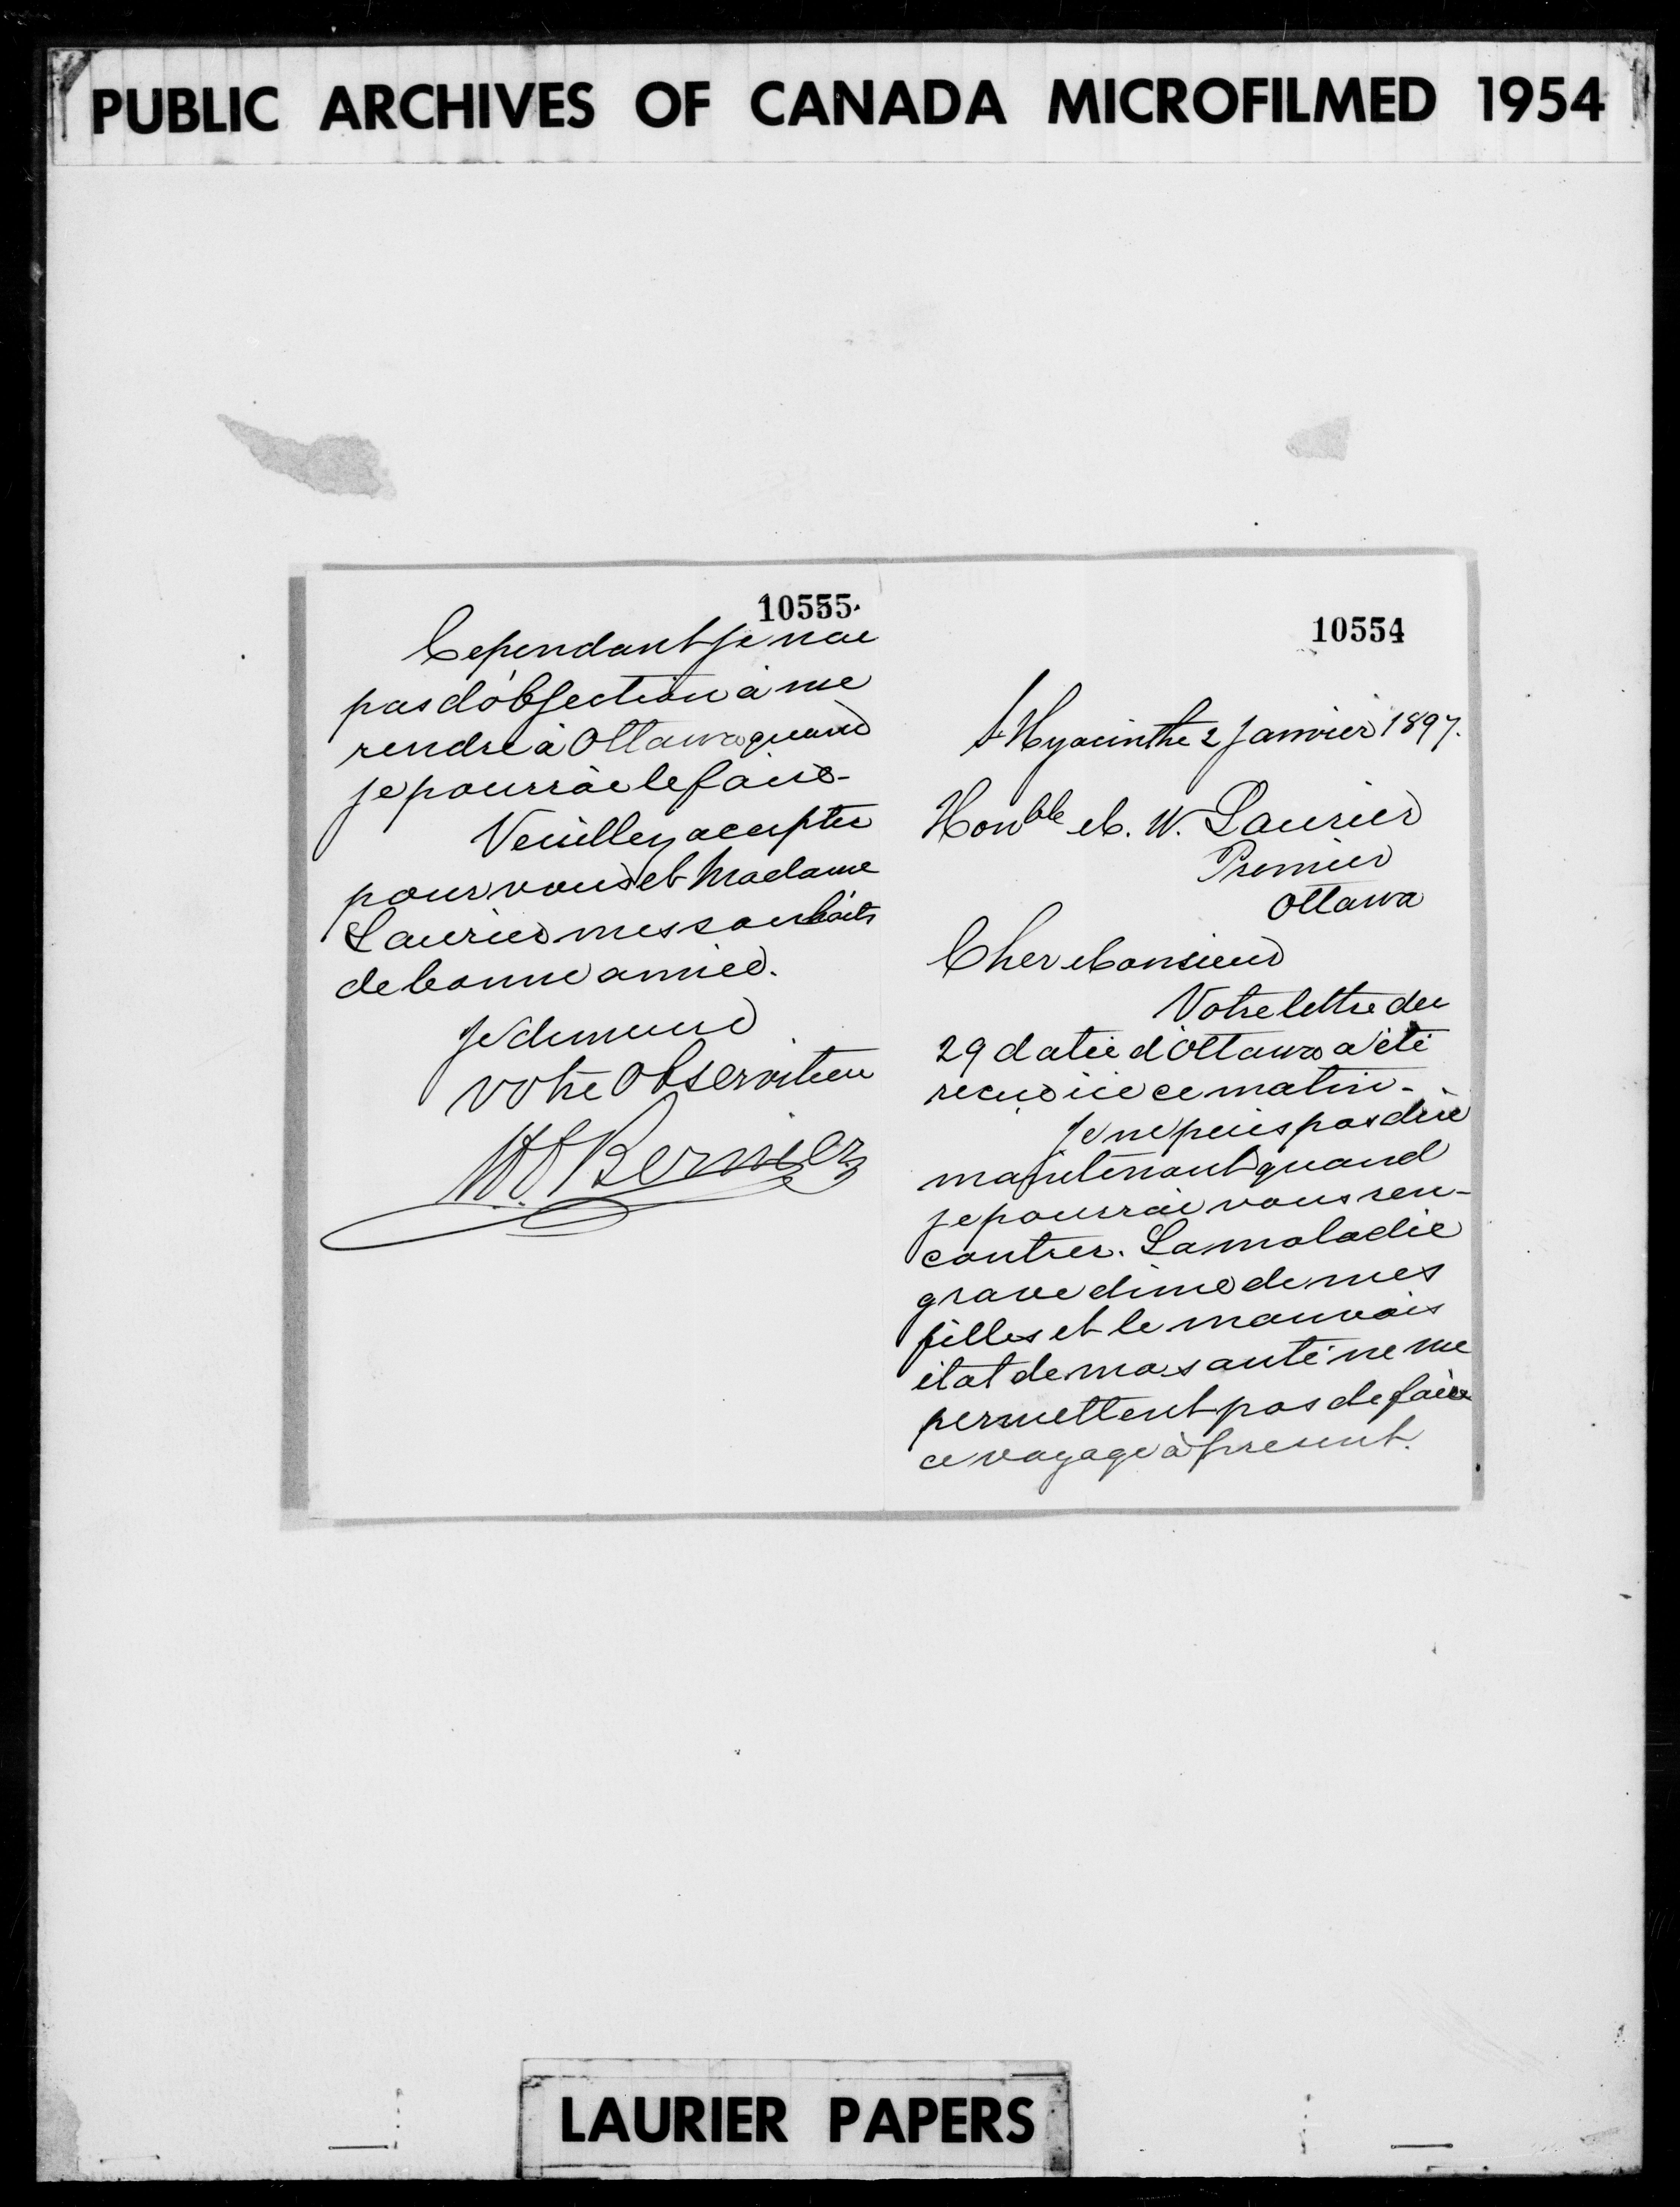 PUBLIC ARCHIVES OF CANADA MICROFILMED 1954
10554
St Hyacinthe 2 Janvier 1897.
Honble M. W. Laurier
Premier
Ottawa
Cher Monsieur
Votre lettre du
29 datée d'Ottawa a été
reçue ici ce matin -
Je ne puis pas dire
maintenant quand
je pourrai vous ren-
contrer. La maladie
grave d'une de mes
filles et le mauvais
état de ma santé ne me
permettent pas de faire
ce voyage à present.
10555
Cependant je n'ai
pas d'objection à me
rendre à Ottawa quand
je pourrai le faire -
Veuillez accepter
pour vous et Madame
Laurier mes souhaits
de bonne année.
Je demeure
votre Observiteur
M E Bernier
LAURIER PAPERS